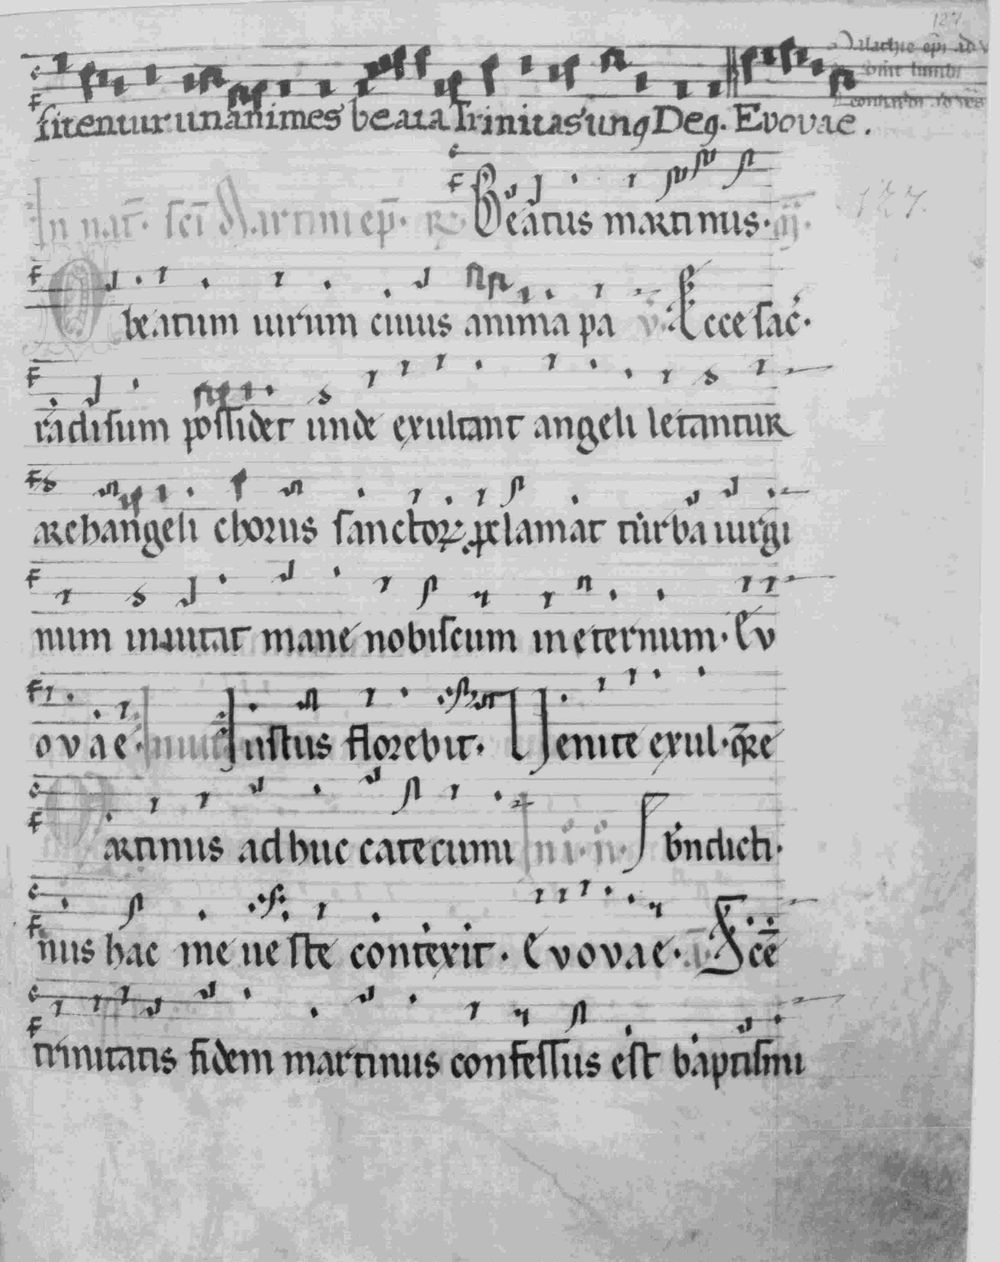 127
Malachie epi
fitentur unanimes beata Trinitas unꝯ Deꝯ. Evovae.
In nat̄· sc̄i Martini ep̄i· ℟ Beatus martinus·
127.
O beatum uirum cuius anima pa v̄· Ecce sac̄·
radisum possidet unde exultant angeli letantur
archangeli chorus sanctoꝝ ꝓclamat turba uirgi
num inuitat mane nobiscum in eternum· Ev
ovae· Inuit̄ Iustus florebit· Venite exul·
Martinus adhuc catecumi In i· n̄· S bn̄dicti·
nus hac me ueste contexit· Evovae· A Scē
trinitatis fidem martinus confessus est baptismi